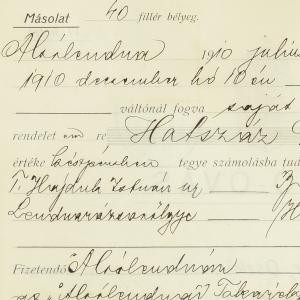 Másolat 40 fillér bélyeg.
Alsólendva 1910 július
1910 deczember hó 10 én
váltónál fogva saját
rendelet em re Hatszáz
értéke készpénzben tegye számolásba tud
T. Hajdul István úr
Lendvavásárhelye
Fizetendő Alsólendván
az "Alsólendvai Takarék